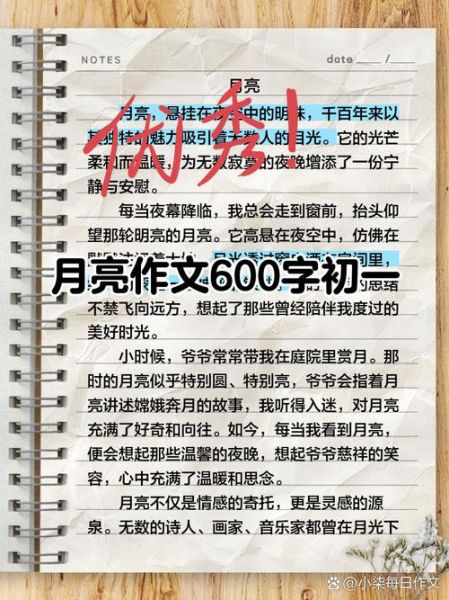 NOTES
date ____/____
月亮
月亮，悬挂在夜空中的明珠，千百年来以
其独特的魅力吸引着无数人的目光。它的光芒
柔和而温暖，为无数寂寞的夜晚增添了一份宁
静与安慰。
优秀！
每当夜幕降临，我总会走到窗前，抬头仰
望那轮明亮的月亮。它高悬在夜空中，仿佛在
月亮作文600字初一
的思绪
不禁飞向远方，想起了那些曾经陪伴我度过的
美好时光。
小时候，爷爷常常带我在庭院里赏月。那
时的月亮似乎特别圆、特别亮，爷爷会指着月
亮讲述嫦娥奔月的故事，我听得入迷，对月亮
充满了好奇和向往。如今，每当我看到月亮，
便会想起那些温馨的夜晚，想起爷爷慈祥的笑
容，心中充满了温暖和思念。
月亮不仅是情感的寄托，更是灵感的源
泉。无数的诗人、画家、音乐家都曾在月光下
小柒每日作文